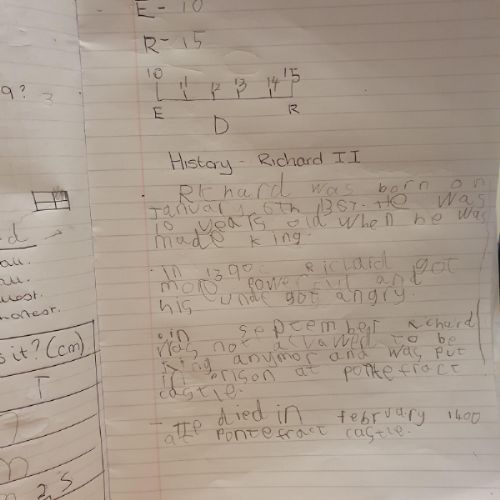 E - 10
R - 15
10 11 12 13 14 15
E R
D
History - Richard II
Richard was born on
January 6th 1367. He was
10 years old when he was
made king.
In 1390s Richard got
more powerful and
his uncle got angry.
in september Richard
was not allawed to be
king anymor and was put
in prison at pontefract
castle.
- He died in february 1400
at Pontefract castle.
9?
d
uest.
honest.
s it? (cm)
2,5